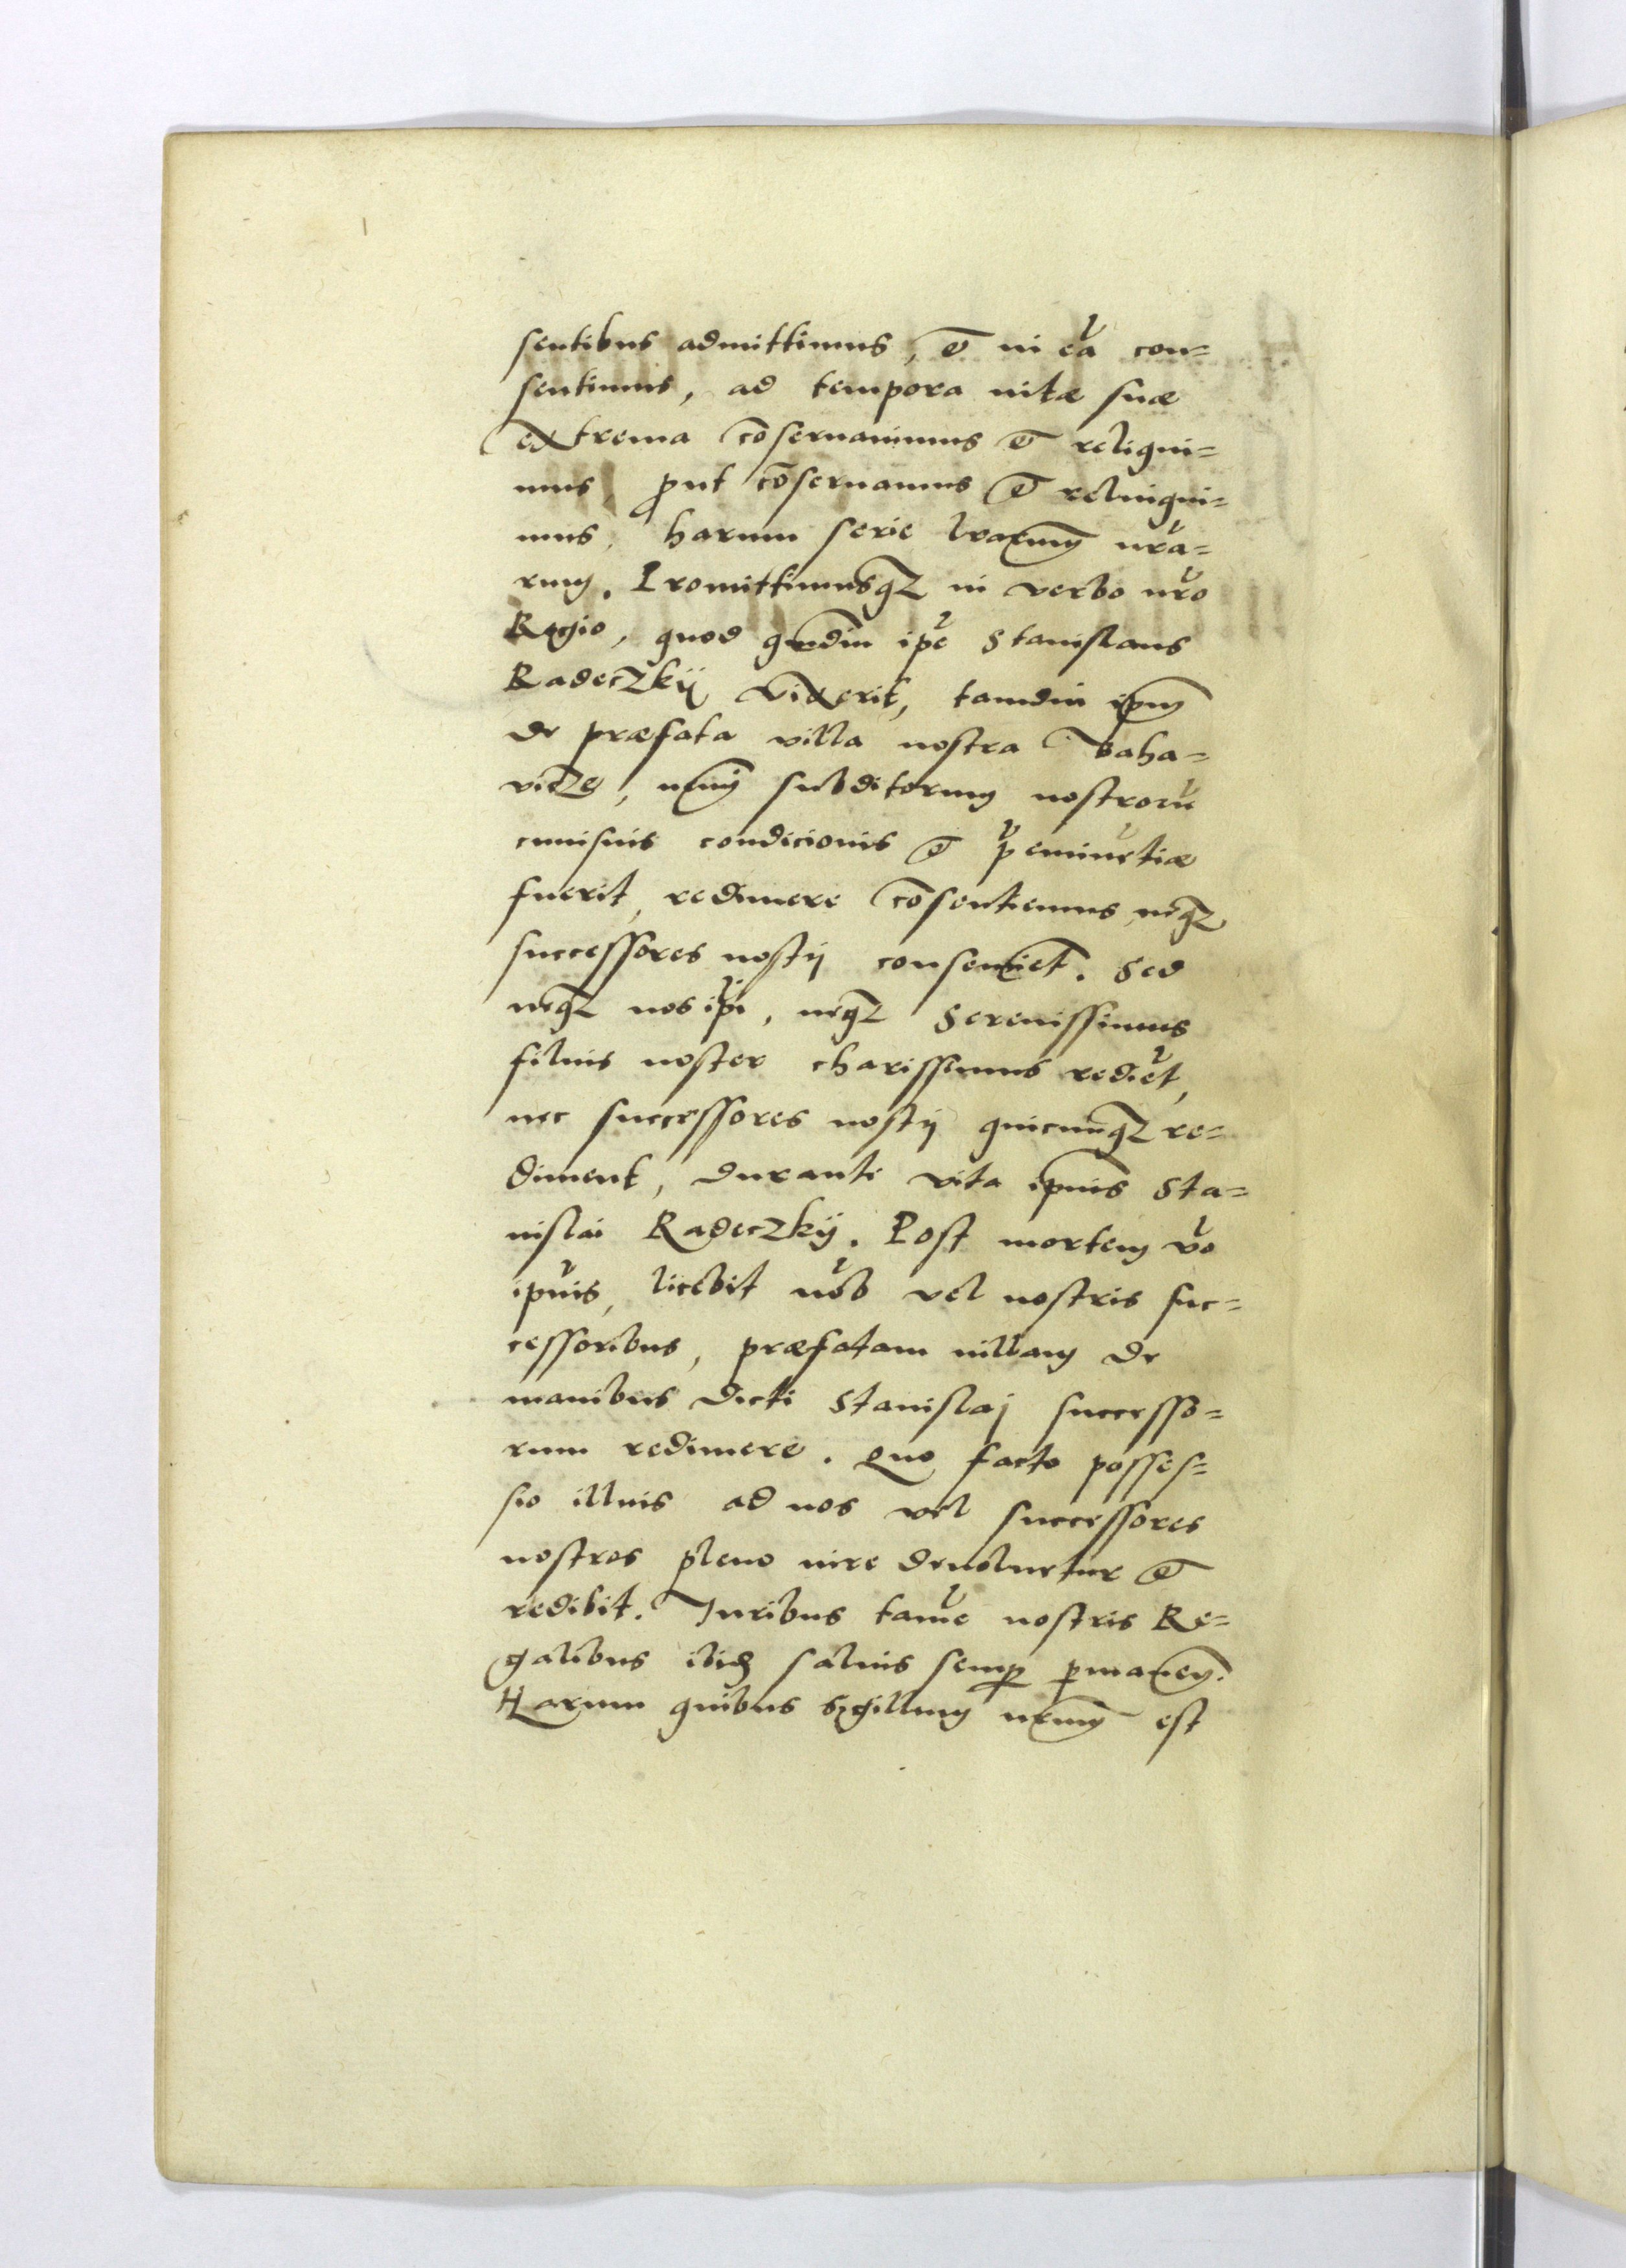 sentibus admittimus, et in eā con=
sentimus, ad tempora uitæ suæ
extrema cōseruauimus et reliqui=
mus, put cōseruamus et relinqui=
mus, harum serie lrarum nrā=
rum. Promittimusqz in verbo nrō
Regio, quod qudiu ipē Stanislaus
Radeczkij vixerit, tamdiu ipm
de præfata villa nostra Baha=
vicze, nemini subditorum nostrorū
cuiusuis condicionis et pēminētiæ
fuerit, redimere cōsentiemus, neqz
successores nostrj consentiēt. Sed
neqz nos ipī, neqz Serenissimus
filius noster charissimus rediēt,
nec successores nostrj quicunqz re=
diment, durante vita ipius Sta=
nislai Radeczkij. Post mortem vō
ipīus, licebit nōb vel nostris suc=
cessoribus, præfatam uillam de
manibus dicti Stanislaj successo=
rum redimere. Quo facto posses=
sio illius ad nos vel successores
nostros pleno iure deuoluetur et
redibit. Juribus tamē nostris Re=
galibus ibid saluis semp pmanen.
Harum quibus Sigillum nrum est